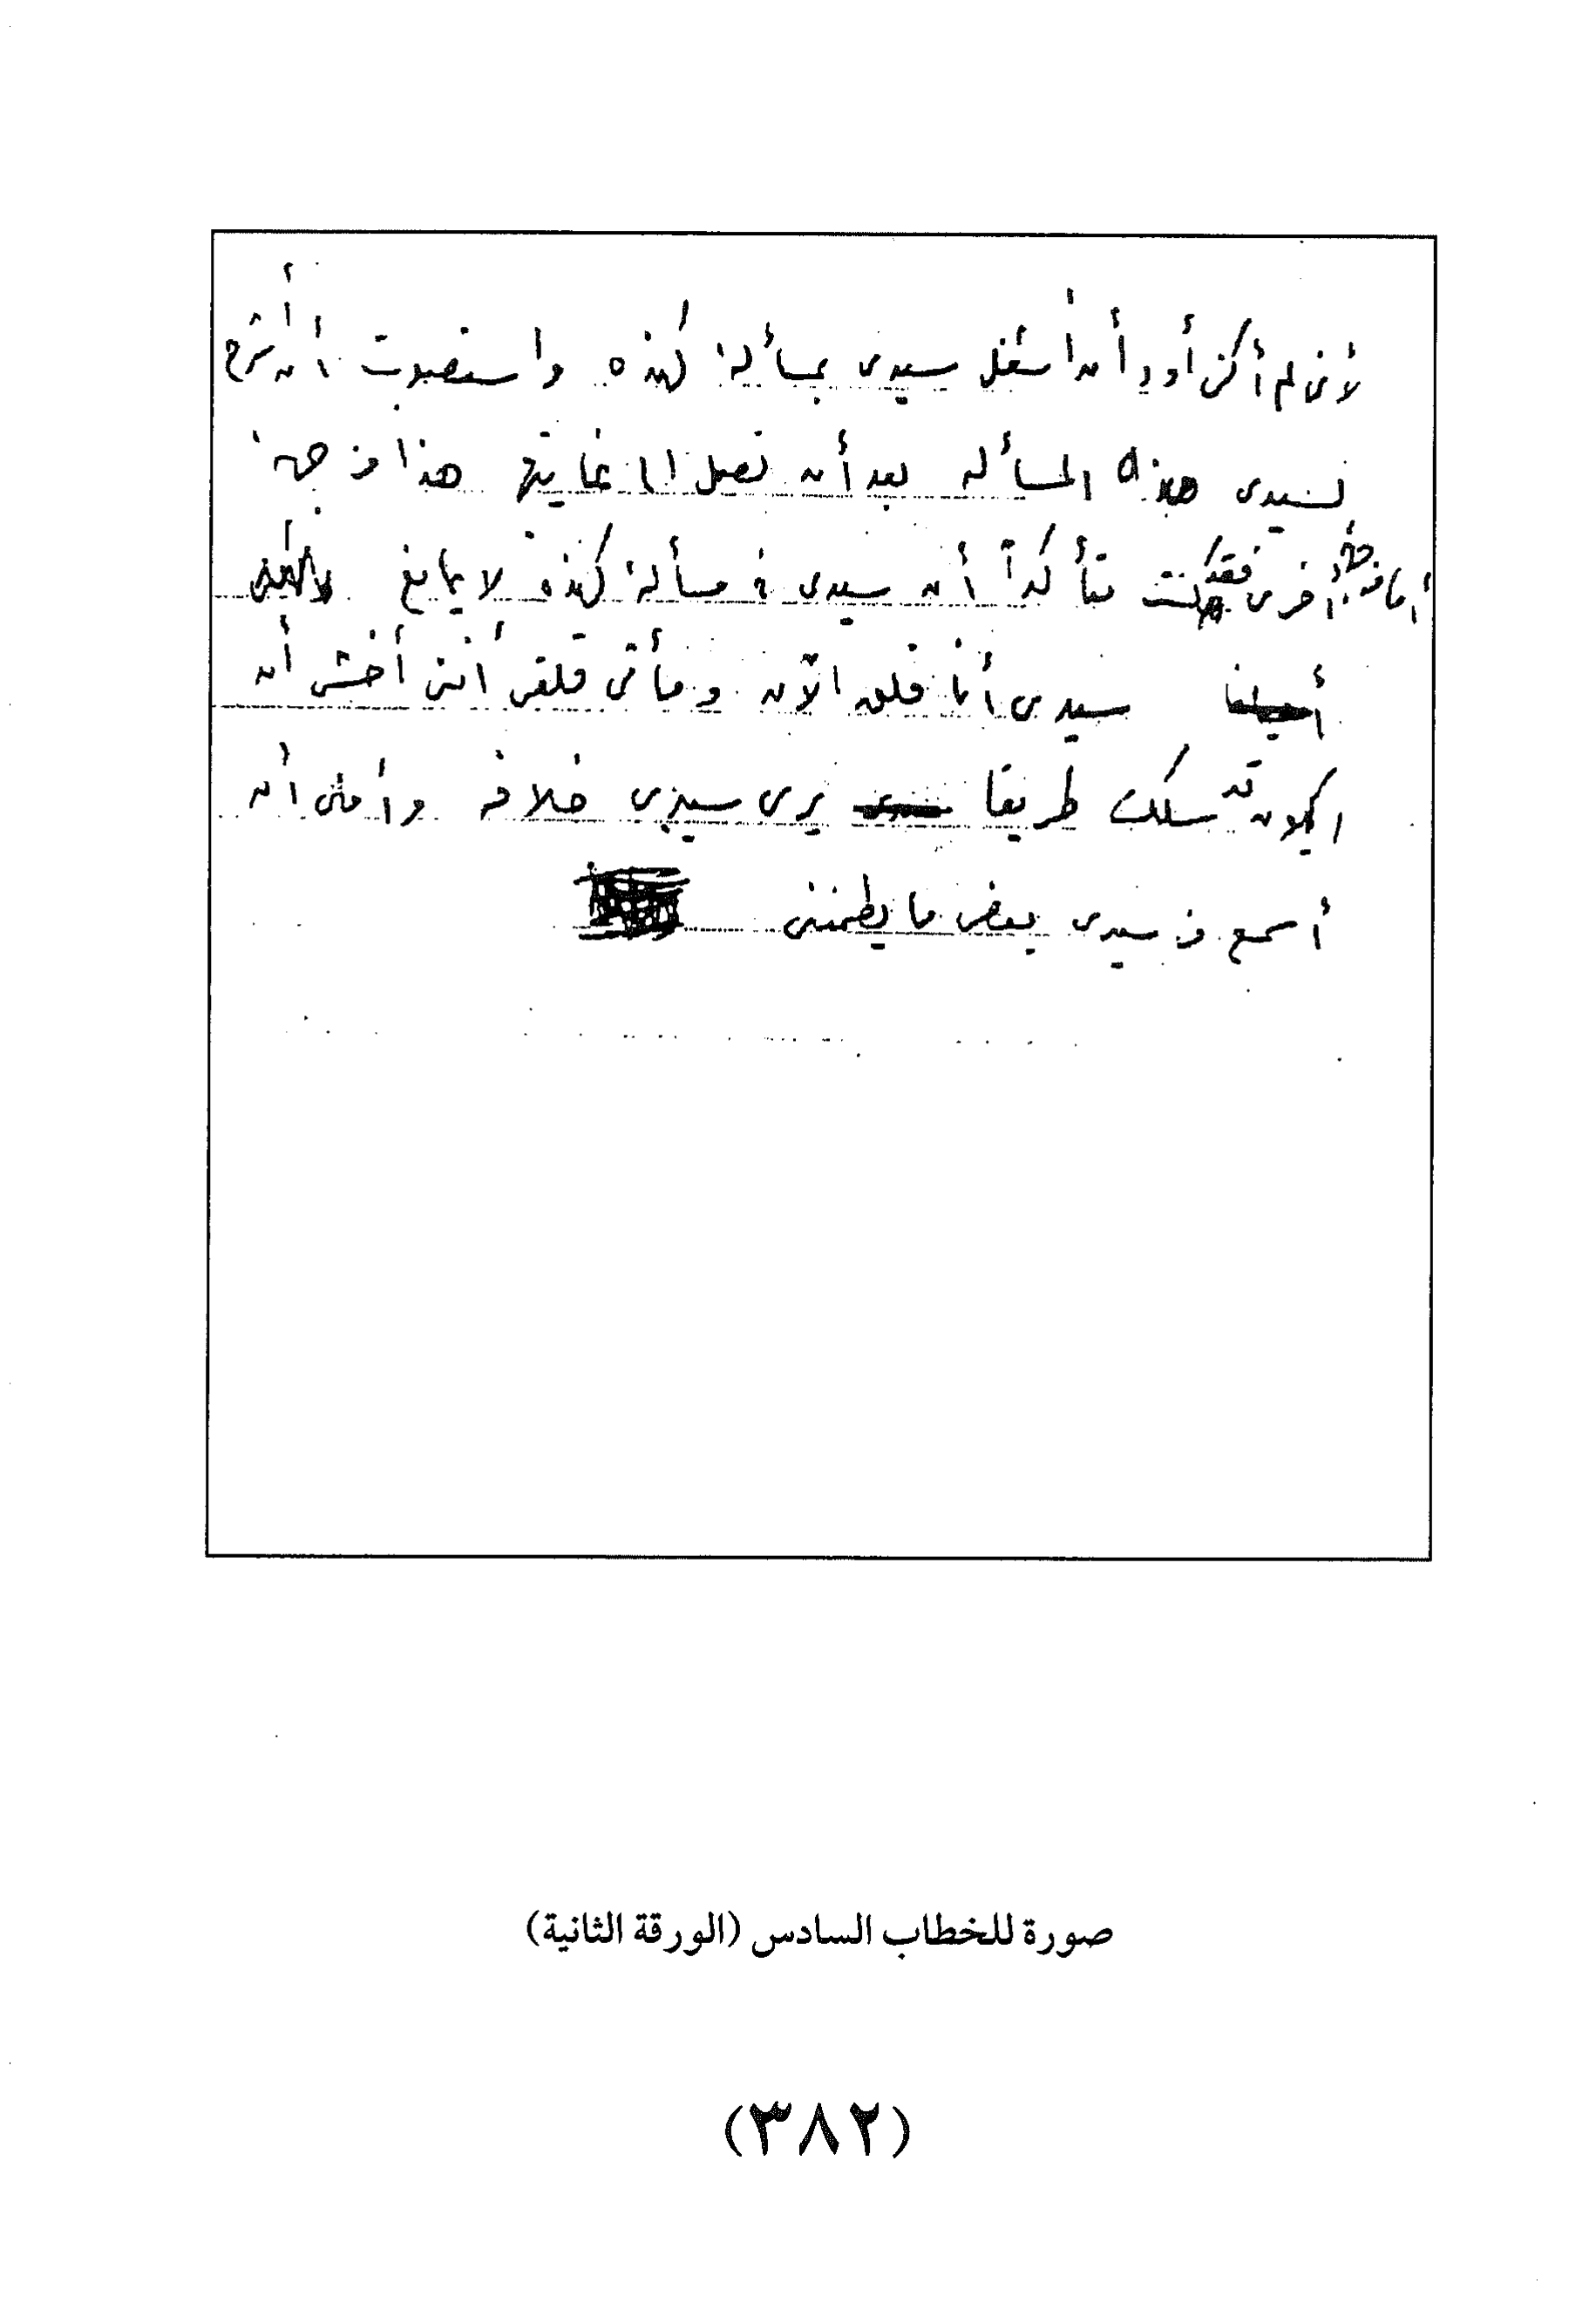 لأنى لم أكن أود أن أشغل سيدى بمسألة كهذه واستصوبت أن أشرح
لسيدى هذه المسألة بعد أن تصل إلى غايتها هذا من جهة
أما من جهة أخرى فقد كنت متأكداً أن سيدى فى مسألة كهذه لا يمانع
سيدى أنا قلق الآن ومأتى قلقى أننى أخشى أن
أكون قد سلكت طريقا يرى سيدى خلافه وأملى أن
أسمع من سيدى بعض ما يطمئننى
صورة للخطاب السادس (الورقة الثانية)
(٣٨٢)